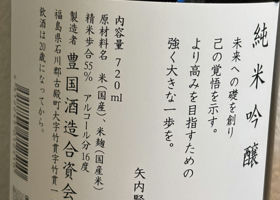 純米吟醸
未来への礎を創り
己の覚悟を示す。
より高みを目指すための
強く大きな一歩を。
矢内賢
内容量 720ml
原材料名 米(国産)、米麹(国産米)
精米歩合55% アルコール分16度
製造者 豊国酒造合資会
福島県石川郡古殿町大字竹貫字竹貫一
飲酒は20歳になってから。